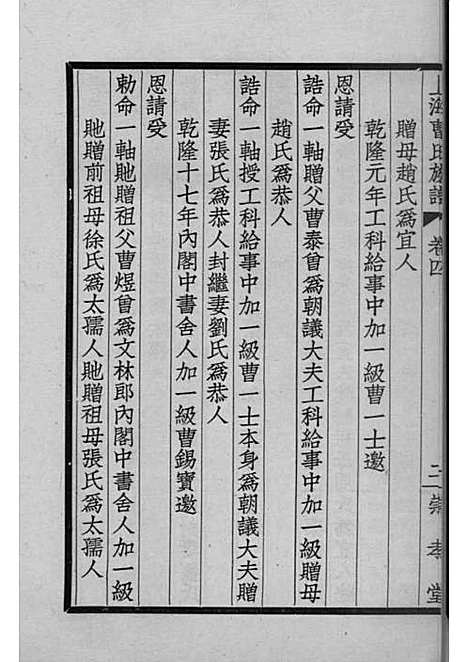 上海曹氏族譜 卷四 二 崇孝堂
贈母趙氏爲宜人
乾隆元年工科給事中加一級曹一士邀
恩請受
誥命一軸贈父曹泰曾爲朝議大夫工科給事中加一級贈母
趙氏爲恭人
誥命一軸授工科給事中加一級曹一士本身爲朝議大夫贈
妻張氏爲恭人封繼妻劉氏爲恭人
乾隆十七年內閣中書舍人加一級曹錫寶邀
恩請受
勅命一軸貤贈祖父曹煜曾爲文林郎內閣中書舍人加一級
貤贈前祖母徐氏爲太孺人貤贈祖母張氏爲太孺人